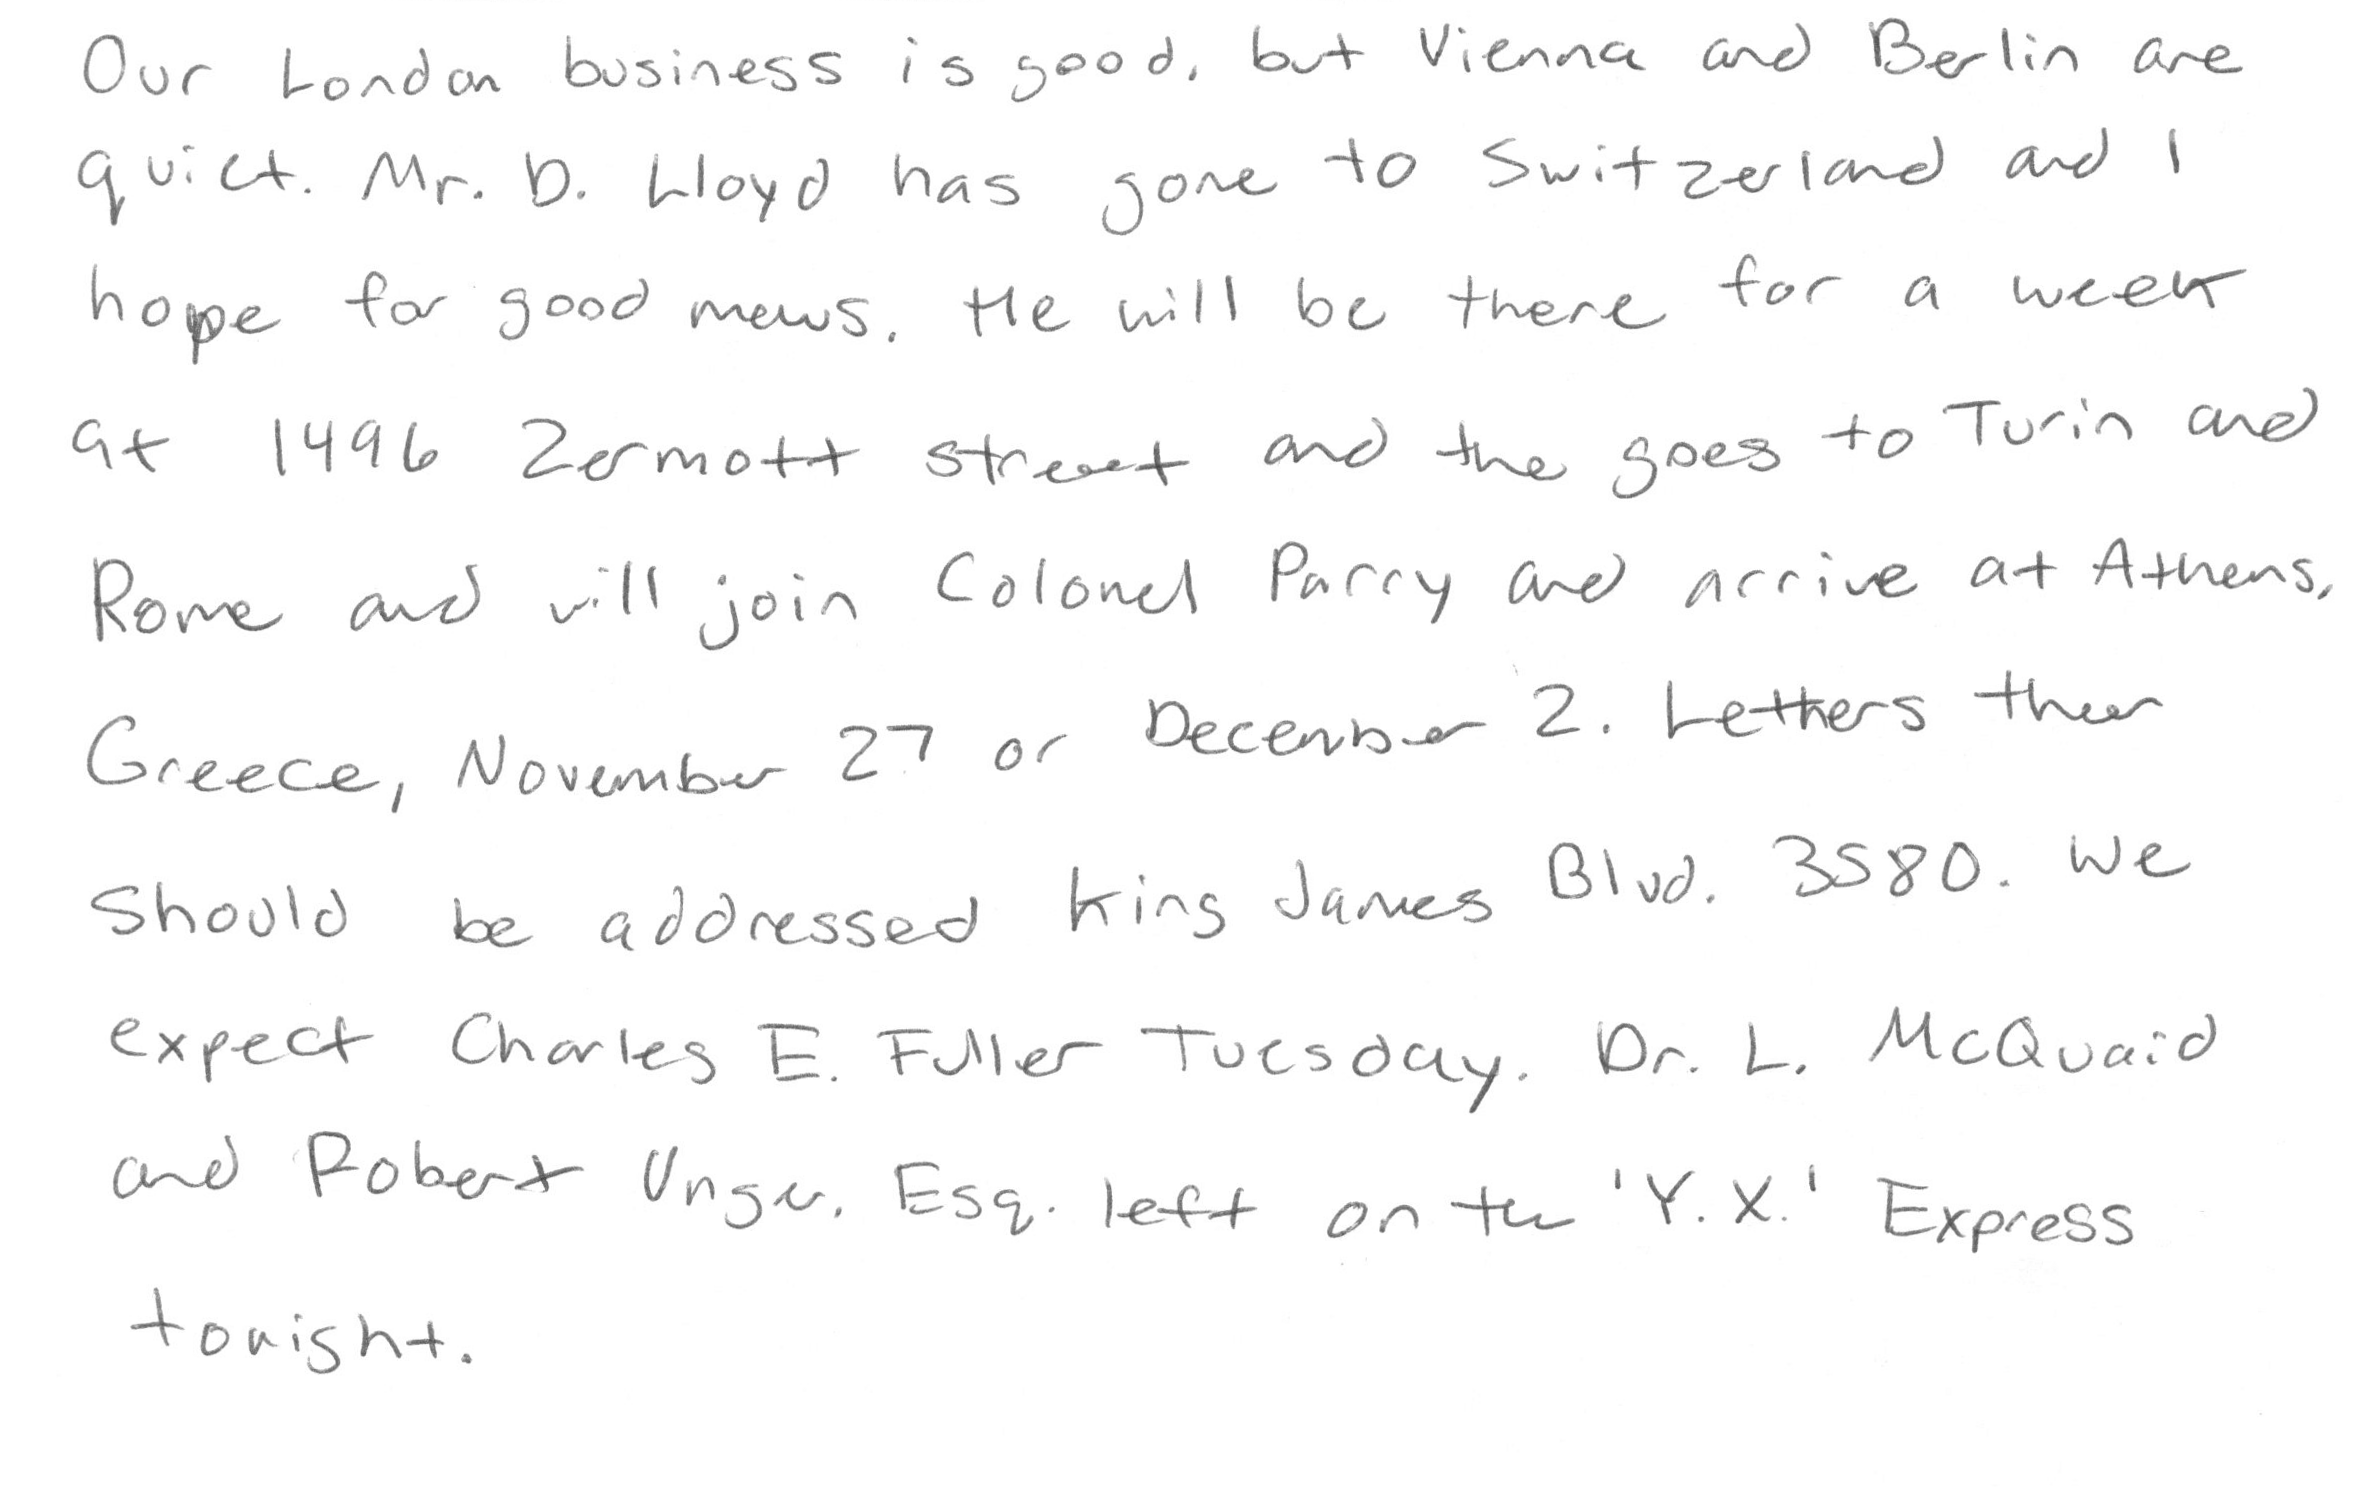 Our London business is good, but Vienna and Berlin are
quiet. Mr. D. Lloyd has gone to Switzerland and I
hope for good news. He will be there for a week
at 1496 Zermott street and the goes to Turin and
Rome and will join Colonel Parry and arrive at Athens,
Greece, November 27 or December 2. Letters there
should be addressed King James Blvd. 3580. We
expect Charles E. Fuller Tuesday. Dr. L. McQuaid
and Robert Unger, Esq. left on the 'Y.X.' Express
tonight.